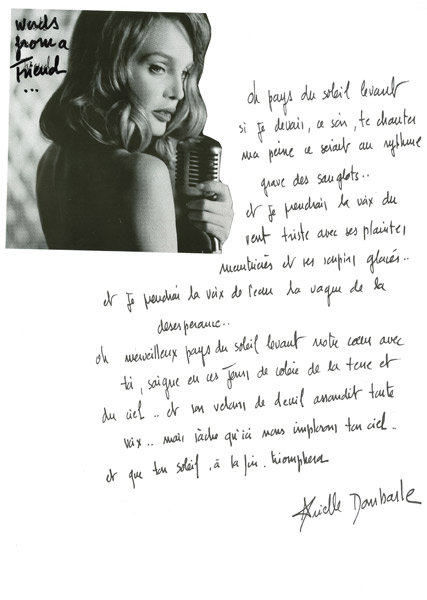 Words
from a
Friend
...
Oh pays du soleil levant
si je devais, ce soir, te chanter
ma peine ce serait au rythme
grave des sanglots..
et je prendrais la voix du
vent triste avec ses plaintes
meurtrières et ses soupirs glacés..
et je prendrai la voix de l'eau la vague de la
desesperance..
Oh merveilleux pays du soleil levant notre cœur avec
toi, saigne en ces jours de colère de la terre et
du ciel.. et son velours de deuil assourdit toute
voix.. mais sache qu'ici nous implorons ton ciel..
et que ton soleil, à la fin. triomphera
Arielle Dombasle